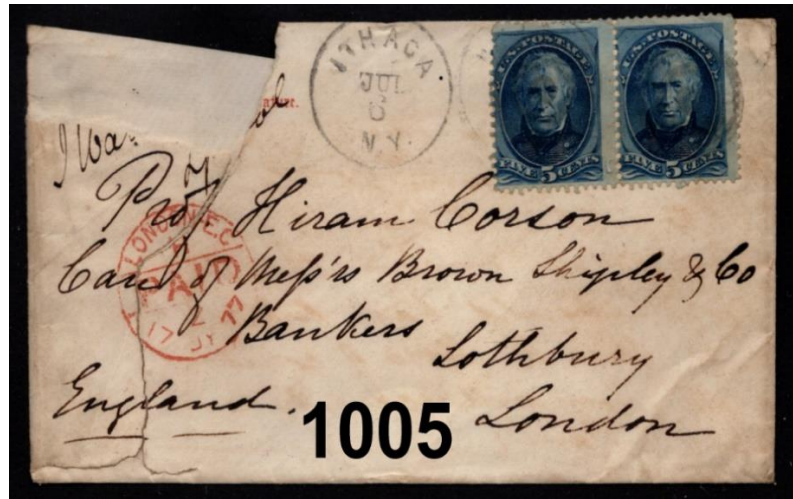 ITHACA
JUL
6
N.Y.
U.S. POSTAGE
FIVE 5 CENTS
U.S. POSTAGE
FIVE 5 CENTS
Prof Hiram Corson
Care of Mess'rs Brown Shipley & Co
Bankers
Lothbury
England.
London
LONDON E.C
PAID
77
1005